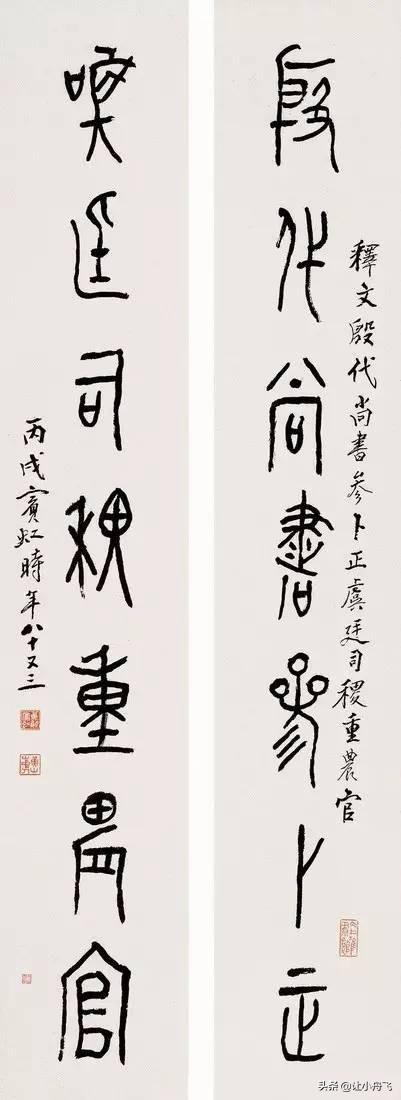 殷代尚書參卜正
釋文殷代尚書參卜正虞廷司稷重農官
虞廷司稷重農官
丙戌賓虹時年八十又三
头条@让小舟飞